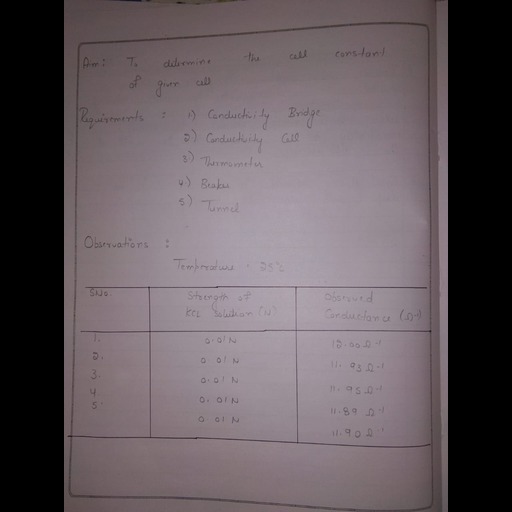 Aim: To determine the cell constant
of given cell
Requirements : 1) Conductivity Bridge
2) Conductivity Cell
3) Thermometer
4) Beaker
5) Tunnel
Observations :
Temperature : 25°C
S.No. Strength of KCL Solution (N) Observed Conductance (Ω-1)
1. 0.01 N 12.00 Ω-1
2. 0.01 N 11.93 Ω-1
3. 0.01 N 11.95 Ω-1
4 0.01 N 11.89 Ω-1
5. 0.01 N 11.90 Ω-1